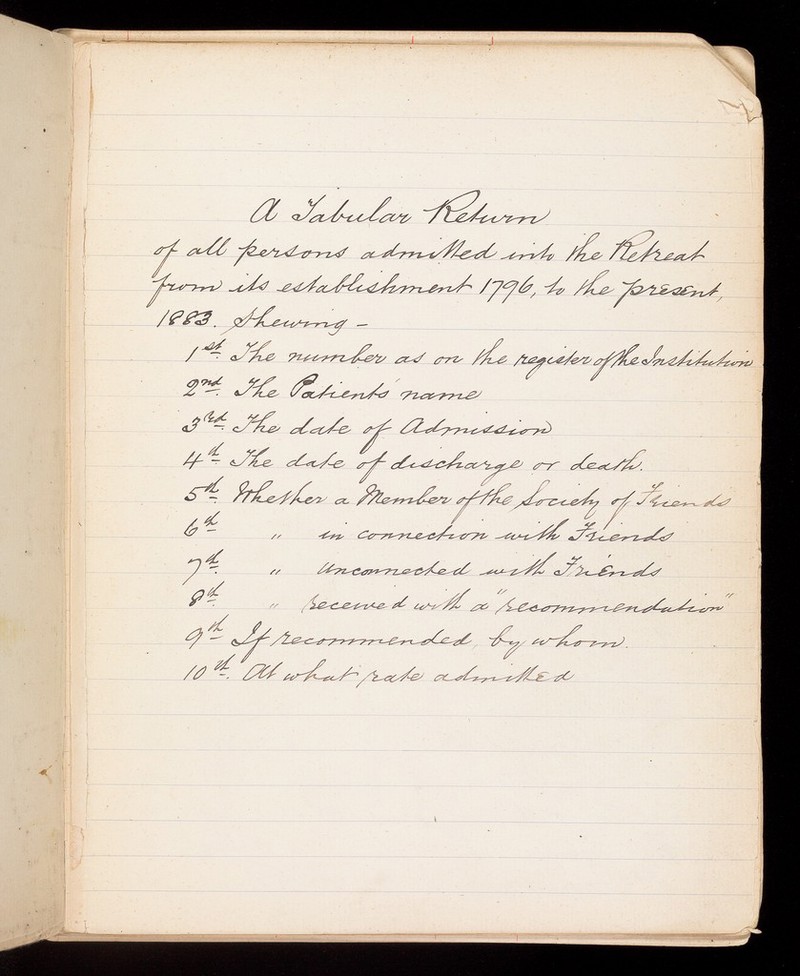 A Tabular Return
of all persons admitted into the Retreat
from its establishment 1796, to the present,
1883. Shewing –
1st. The number as on the register of the Institution
2nd. The Patients' name
3rd. The date of Admission
4th The date of discharge or death.
5th. Whether a Member of the Society of Friends
6th " in connection with Friends
7th. " Unconnected with Friends
8th. " received with a "recommendation"
9th If recommended, by whom.
10th. At what rate admitted